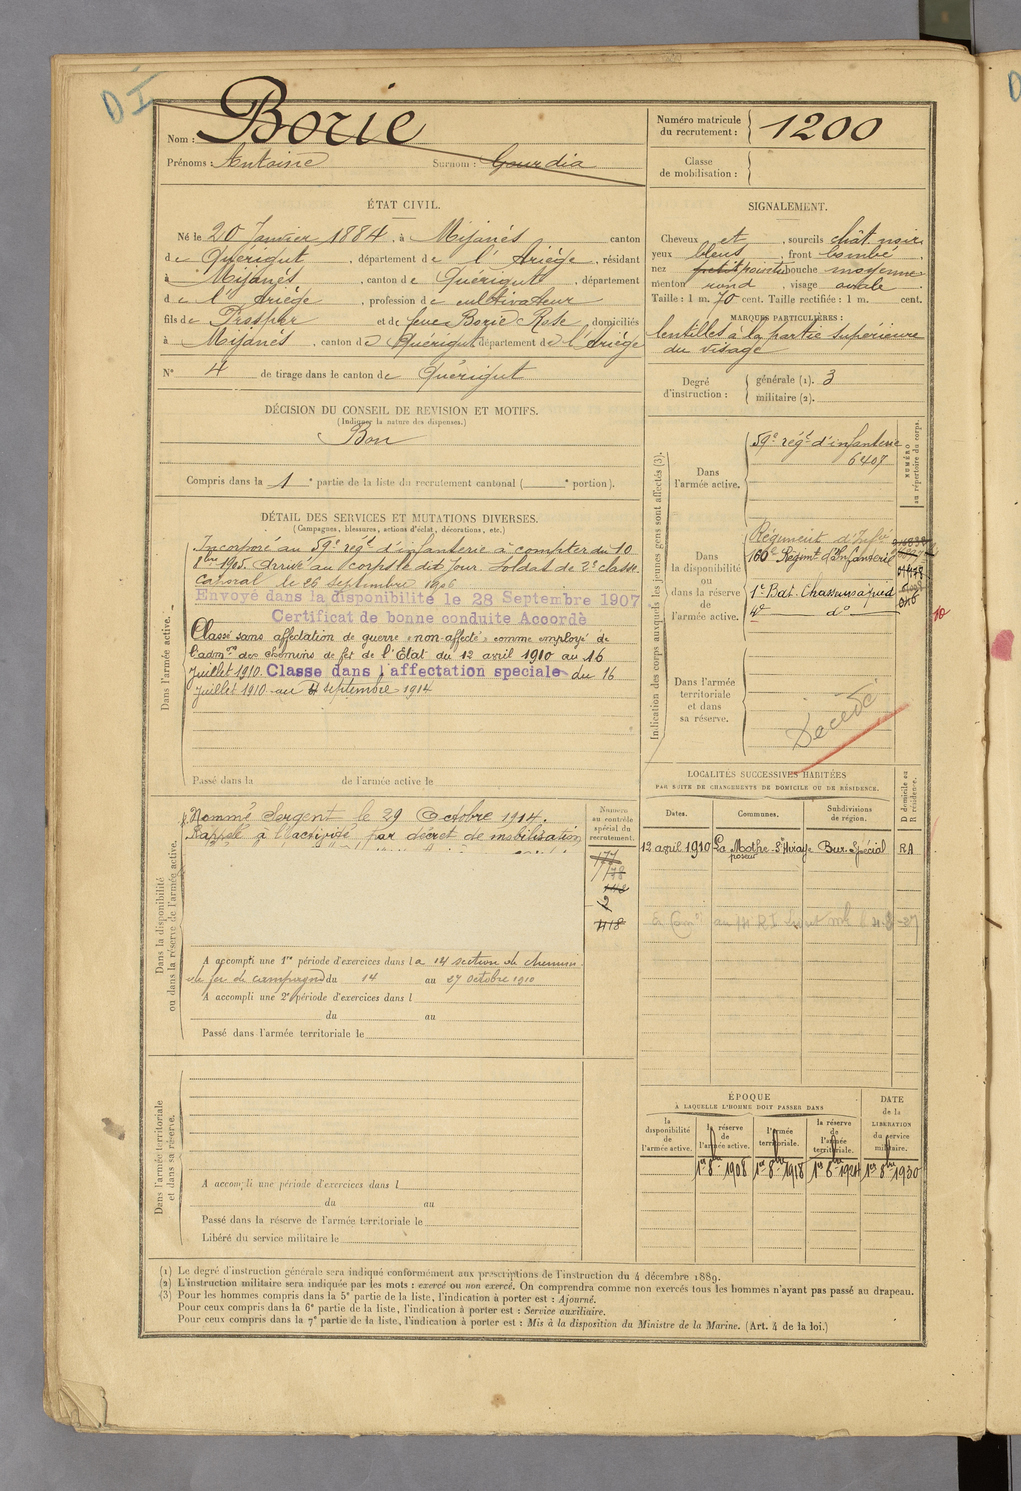 D I
Nom : Borie
Prénoms : Antoine Surnom : Gourdia
Numéro matricule
du recrutement : 1200
Classe
de mobilisation :
ÉTAT CIVIL.
Né le 20 Janvier 1884, à Mijanés canton
de Quérigut, département de l'Ariège, résidant
à Mijanés, canton de Quérigut, département
de l'Ariège, profession de cultivateur
fils de Prosper et de feue Borie Rose, domiciliés
à Mijanés, canton de Quérigut département de l'Ariège
N° 4 de tirage dans le canton de Quérigut
SIGNALEMENT.
Cheveux et, sourcils chât. noir
yeux bleus, front bombé
nez petit pointu bouche moyenne
menton rond, visage ovale.
Taille : 1 m. 70 cent. Taille rectifiée : 1 m. cent.
MARQUES PARTICULIÈRES :
lentilles à la partie supérieure
du visage
Degré
d'instruction :
générale (1). 3
militaire (2).
DÉCISION DU CONSEIL DE REVISION ET MOTIFS.
(Indiquer la nature des dispenses.)
Bon
Compris dans la 1e partie de la liste du recrutement cantonal ( e portion).
DÉTAIL DES SERVICES ET MUTATIONS DIVERSES.
(Campagnes, blessures, actions d'éclat, décorations, etc.)
Dans l'armée active.
Incorporé au 59e régt d'infanterie à compter du 10
8bre 1905. Arrivé au corps le dit jour. Soldat de 2e classe.
Caporal le 26 septembre 1906
Envoyé dans la disponibilité le 28 Septembre 1907
Certificat de bonne conduite Accordé
Classé sans affectation de guerre "non-affecté" comme employé de
l'admon des chemins de fer de l'État du 12 avril 1910 au 16
juillet 1910. Classé dans l'affectation spéciale du 16
juillet 1910 au 4 septembre 1914
Passé dans la de l'armée active le
Indication des corps auxquels les jeunes gens sont affectés (3).
Dans
l'armée active.
59e régt d'infanterie
6407
NUMÉRO
au répertoire du corps.
Dans
la disponibilité
ou
dans la réserve
de
l'armée active.
Régiment d'Infie
166e Régimt d'Infanterie
1er Bat. Chasseurs à pied
4e do
10
Dans l'armée
territoriale
et dans
sa réserve.
Décédé
LOCALITÉS SUCCESSIVES HABITÉES
PAR SUITE DE CHANGEMENTS DE DOMICILE OU DE RÉSIDENCE.
Dates.
Communes.
Subdivisions
de région.
D domicile ou
R résidence.
12 avril 1910 La Mothe-St Héraye Bur. Spécial RA
poseur
Dans la disponibilité
ou dans la réserve de l'armée active.
Nommé Sergent le 29 Octobre 1914.
Rappelé à l'activité par décret de mobilisation
Numéro
au contrôle
spécial du
recrutement.
A accompli une 1re période d'exercices dans la 14 section de chemins
de fer de campagne du 14 au 27 octobre 1910
A accompli une 2e période d'exercices dans l
du au
Passé dans l'armée territoriale le
Dans l'armée territoriale
et dans sa réserve.
A accompli une période d'exercices dans l
du au
Passé dans la réserve de l'armée territoriale le
Libéré du service militaire le
ÉPOQUE
À LAQUELLE L'HOMME DOIT PASSER DANS
la
disponibilité
de
l'armée active.
la réserve
de
l'armée active.
l'armée
territoriale.
la réserve
de
l'armée
territoriale.
DATE
de la
LIBÉRATION
du service
militaire.
1er 8bre 1908 1er 8bre 1918 1er 8bre 1924 1er 8bre 1930
(1) Le degré d'instruction générale sera indiqué conformément aux prescriptions de l'instruction du 4 décembre 1889.
(2) L'instruction militaire sera indiquée par les mots : exercé ou non exercé. On comprendra comme non exercés tous les hommes n'ayant pas passé au drapeau.
(3) Pour les hommes compris dans la 5e partie de la liste, l'indication à porter est : Ajourné.
Pour ceux compris dans la 6e partie de la liste, l'indication à porter est : Service auxiliaire.
Pour ceux compris dans la 7e partie de la liste, l'indication à porter est : Mis à la disposition du Ministre de la Marine. (Art. 4 de la loi.)